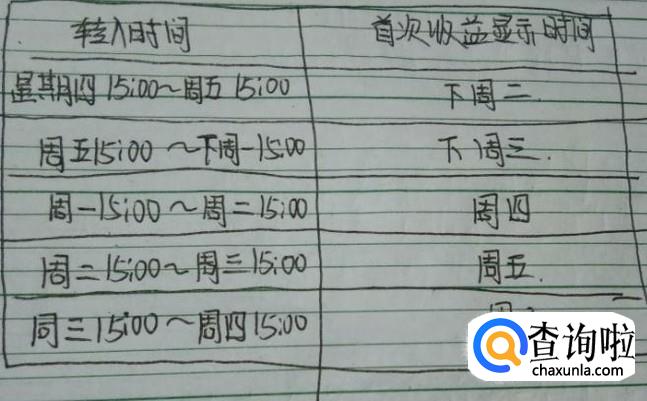 转入时间 首次收益显示时间
星期四 15:00~周五 15:00 下周二.
周五15:00 ~下周一15:00 下周三.
周一15:00~周二15:00 周四
周二15:00~周三15:00 周五.
周三15:00~周四15:00
查询啦
chaxunla.com